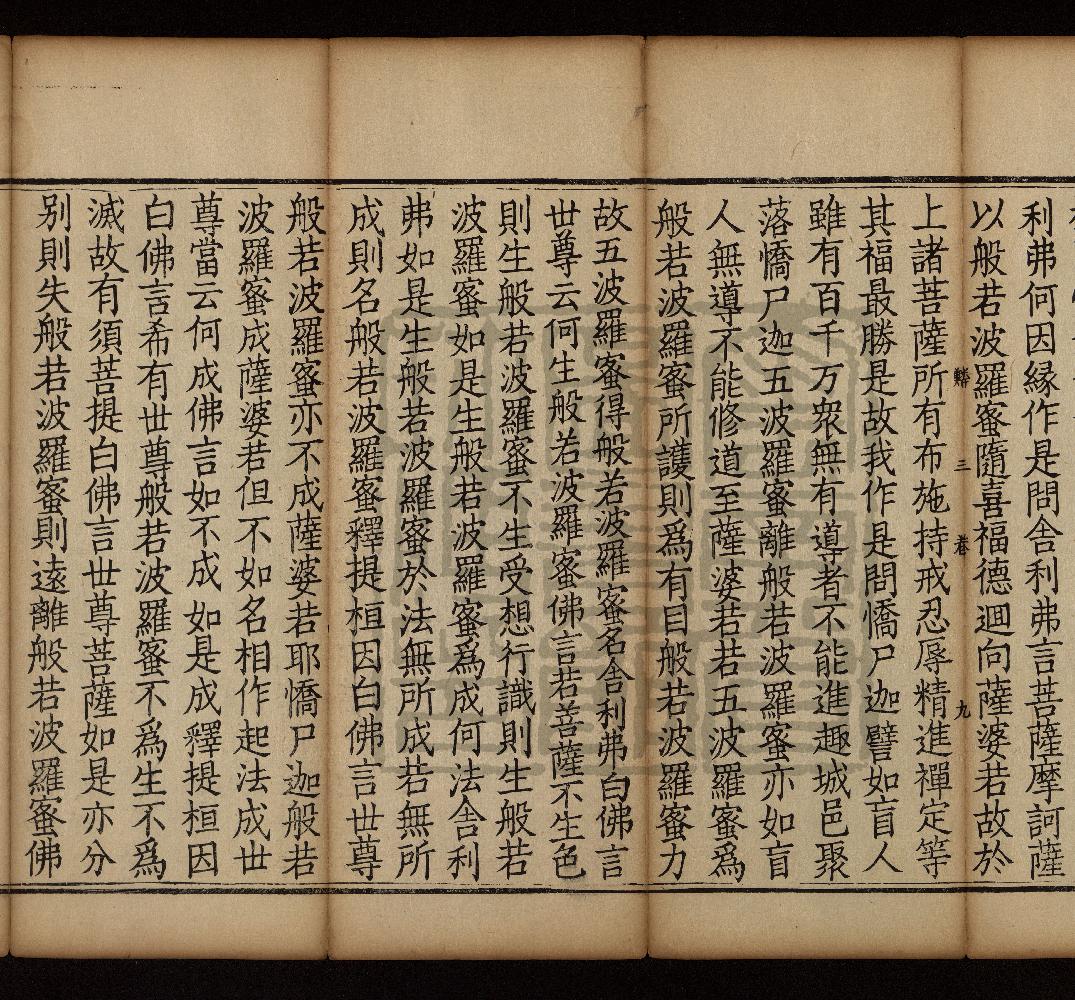 利弗何因縁作是問舍利弗言菩薩摩訶薩
以般若波羅蜜隨喜福德迴向薩婆若故於
三 卷 九
上諸菩薩所有布施持戒忍辱精進禪定等
其福最勝是故我作是問憍尸迦譬如盲人
雖有百千万衆無有導者不能進趣城邑聚
落憍尸迦五波羅蜜離般若波羅蜜亦如盲
人無導不能修道至薩婆若若五波羅蜜爲
般若波羅蜜所護則爲有目般若波羅蜜力
故五波羅蜜得般若波羅蜜名舍利弗白佛言
世尊云何生般若波羅蜜佛言若菩薩不生色
則生般若波羅蜜不生受想行識則生般若
波羅蜜如是生般若波羅蜜爲成何法舍利
弗如是生般若波羅蜜於法無所成若無所
成則名般若波羅蜜釋提桓因白佛言世尊
般若波羅蜜亦不成薩婆若耶憍尸迦般若
波羅蜜成薩婆若但不如名相作起法成世
尊當云何成佛言如不成如是成釋提桓因
白佛言希有世尊般若波羅蜜不爲生不爲
滅故有須菩提白佛言世尊菩薩如是亦分
别則失般若波羅蜜則遠離般若波羅蜜佛